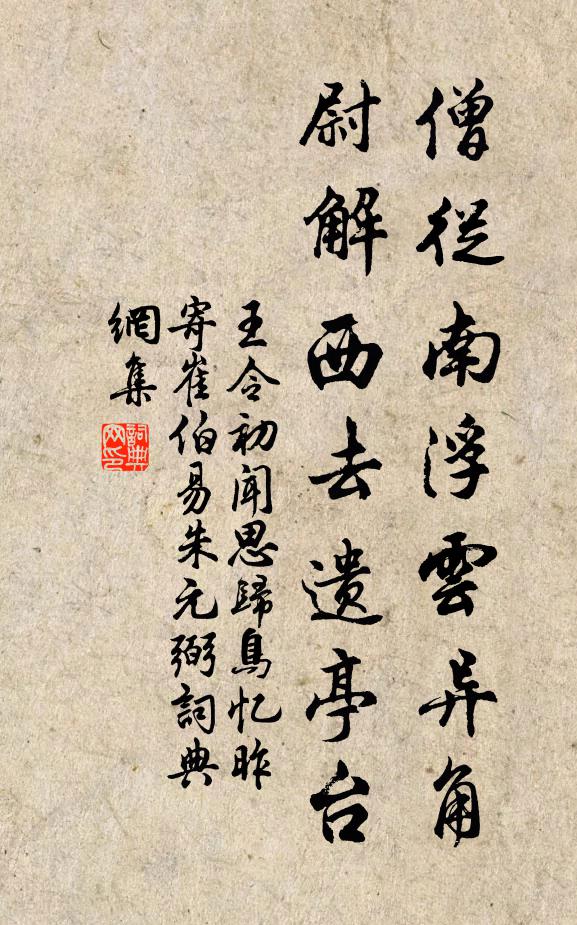 僧從南浮雲异角
尉解西去遺亭台
王令初聞思歸鳥忆昨
寄崔伯易朱元弼詞典
網集
詞典
网印